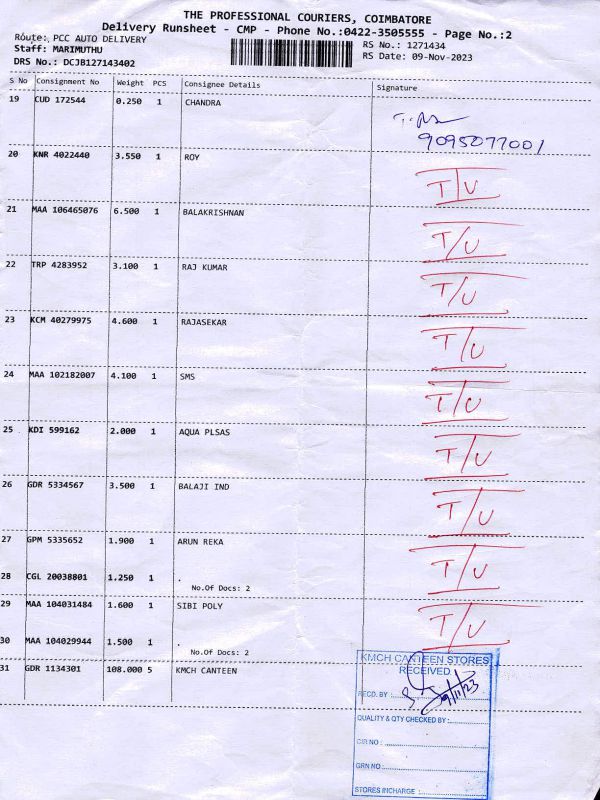 THE PROFESSIONAL COURIERS, COIMBATORE
Delivery Runsheet - CMP - Phone No.:0422-3505555 - Page No.:2
Route: PCC AUTO DELIVERY
Staff: MARIMUTHU
DRS No.: DCJB127143402
RS No.: 1271434
RS Date: 09-Nov-2023
S No Consignment No Weight PCS Consignee Details Signature
19 CUD 172544 0.250 1 CHANDRA
9095077001
20 KNR 4022440 3.550 1 ROY T/U
21 MAA 106465076 6.500 1 BALAKRISHNAN T/U
22 TRP 4283952 3.100 1 RAJ KUMAR T/U
23 KCM 40279975 4.600 1 RAJASEKAR T/U
24 MAA 102182007 4.100 1 SMS T/U
25 KDI 599162 2.000 1 AQUA PLSAS T/U
26 GDR 5334567 3.500 1 BALAJI IND T/U
27 GPM 5335652 1.900 1 ARUN REKA T/U
28 CGL 20038801 1.250 1 .
No.Of Docs: 2
29 MAA 104031484 1.600 1 SIBI POLY T/U
30 MAA 104029944 1.500 1 .
No.Of Docs: 2
31 GDR 1134301 108.000 5 KMCH CANTEEN
KMCH CANTEEN STORES
RECEIVED
RECD. BY : 9/11/23
QUALITY & QTY CHECKED BY :
CIR NO :
GRN NO :
STORES INCHARGE :